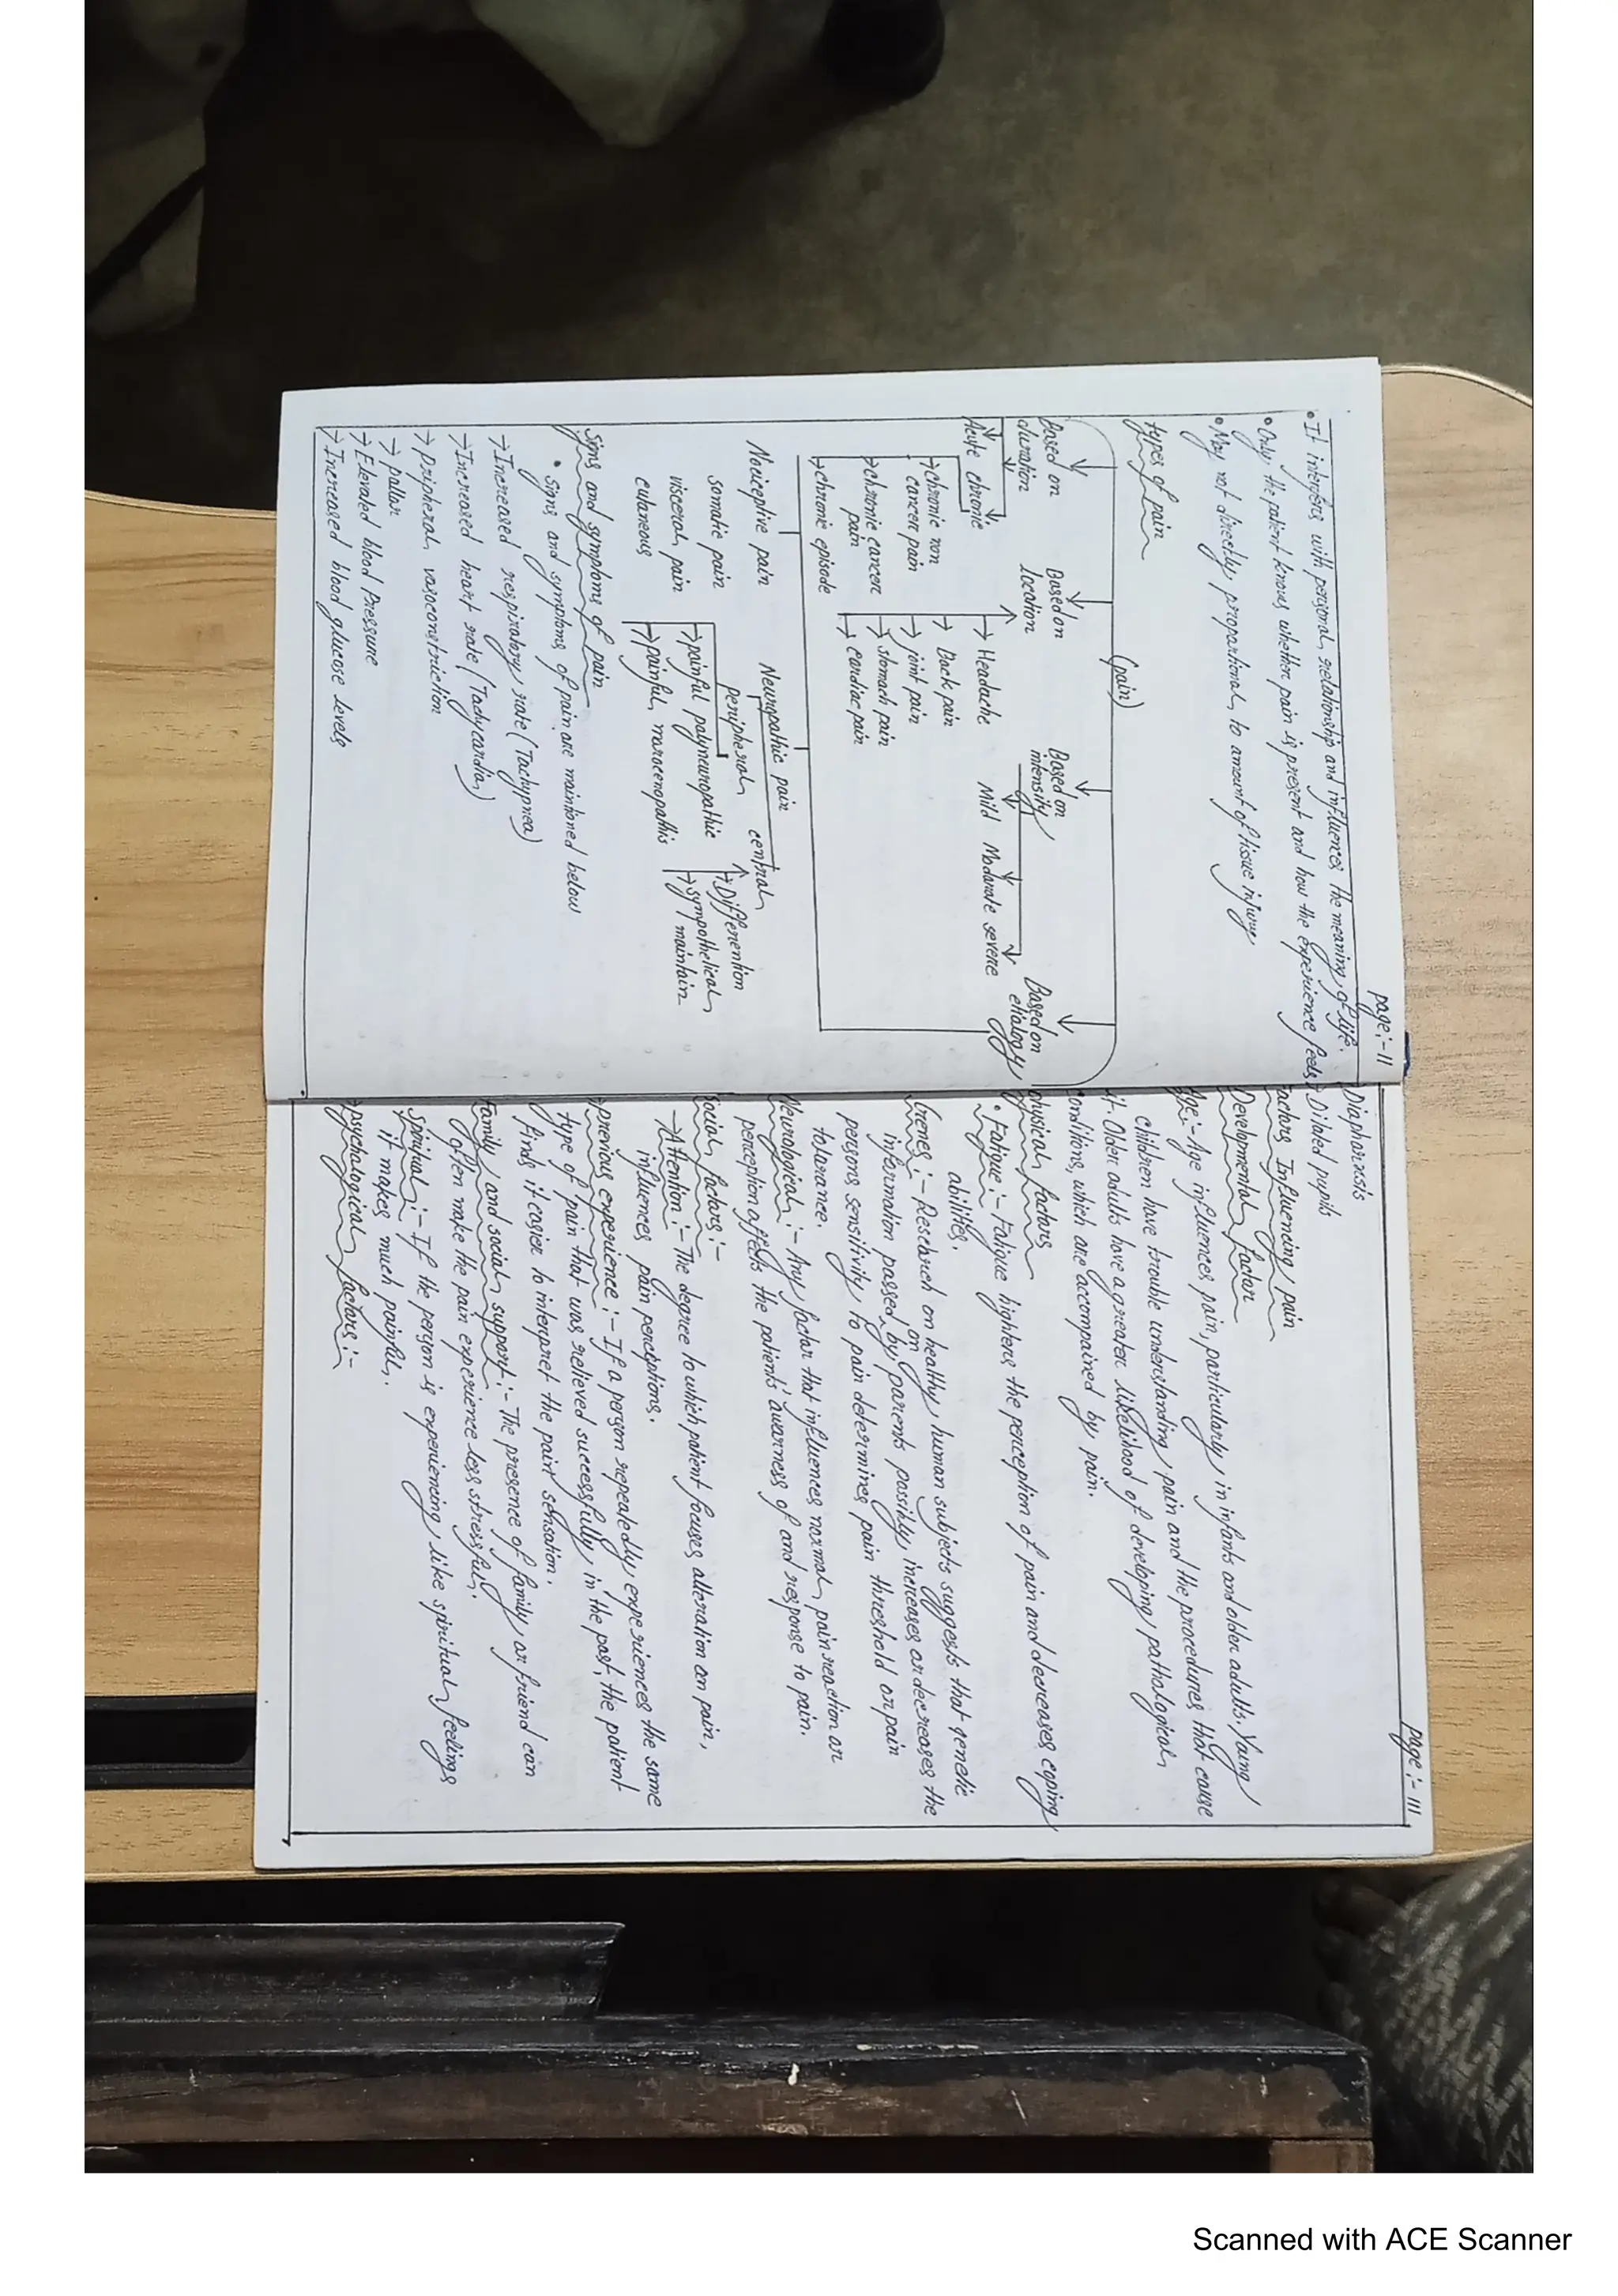 page:- 11
• It interfers with personal relationship and influences the meaning of life.
• Only the patient knows whether pain is present and how the experience feels
• May not directly proportional to amount of tissue injury
types of pain
(pain)
Based on duration
Based on location
Based on intensity
Based on etialogy
Acute chronic
→chronic non cancer pain
→chronic cancer pain
→chronic episode
→ Headache
→ Back pain
→ joint pain
→ stomach pain
→ cardiac pain
Mild Modarate severe
Nociceptive pain
somatic pain
visceral pain
cutaneous
Neuropathic pain
peripheral central
→painful polyneuropathic
→painful
→sympathetical maintain
signs and symptoms of pain
• signs and symptoms of pain are maintioned below
→Increased respiratory rate (Tachypnea)
→Increased heart rate (Tachycardia)
→pripheral vasoconstriction
→ pallor
→Elevated blood Pressure
→Increased blood glucose levels
page:- 111
Diaphoresis
→Dilated pupils
factors Influencing pain
Developmental factor
Age:- Age influences pain, particularly in infants and older adults. Young
children have trouble understanding pain and the procedures that cause
it. Older adults have a greater likelihood of developing pathological
conditions, which are accompained by pain.
physical factors
• Fatigue:- Fatigue hightens the perception of pain and decreases coping
abilites.
Genes:- Research on healthy human subjects suggests that genetic
information passed on by parents possibly increases or decreases the
persons sensitivity to pain determines pain threshold or pain
tolarance.
Neurological:- Any factor that influences normal pain reaction or
perception affects the patients' awarness of and response to pain.
Social factors:-
→Attention:- The degree to which patient focuses alteration on pain,
influences pain perceptions.
→previous experience:- If a person repeatedly experiences the same
type of pain that was relieved successfully in the past, the patient
finds it easier to interpret the pain sensation.
Family and social support:- The presence of family or friend can
often make the pain experience less stressful.
Spiritual:- If the person is experiencing like spiritual feelings
it makes much painful.
→psychological factors:-
Scanned with ACE Scanner